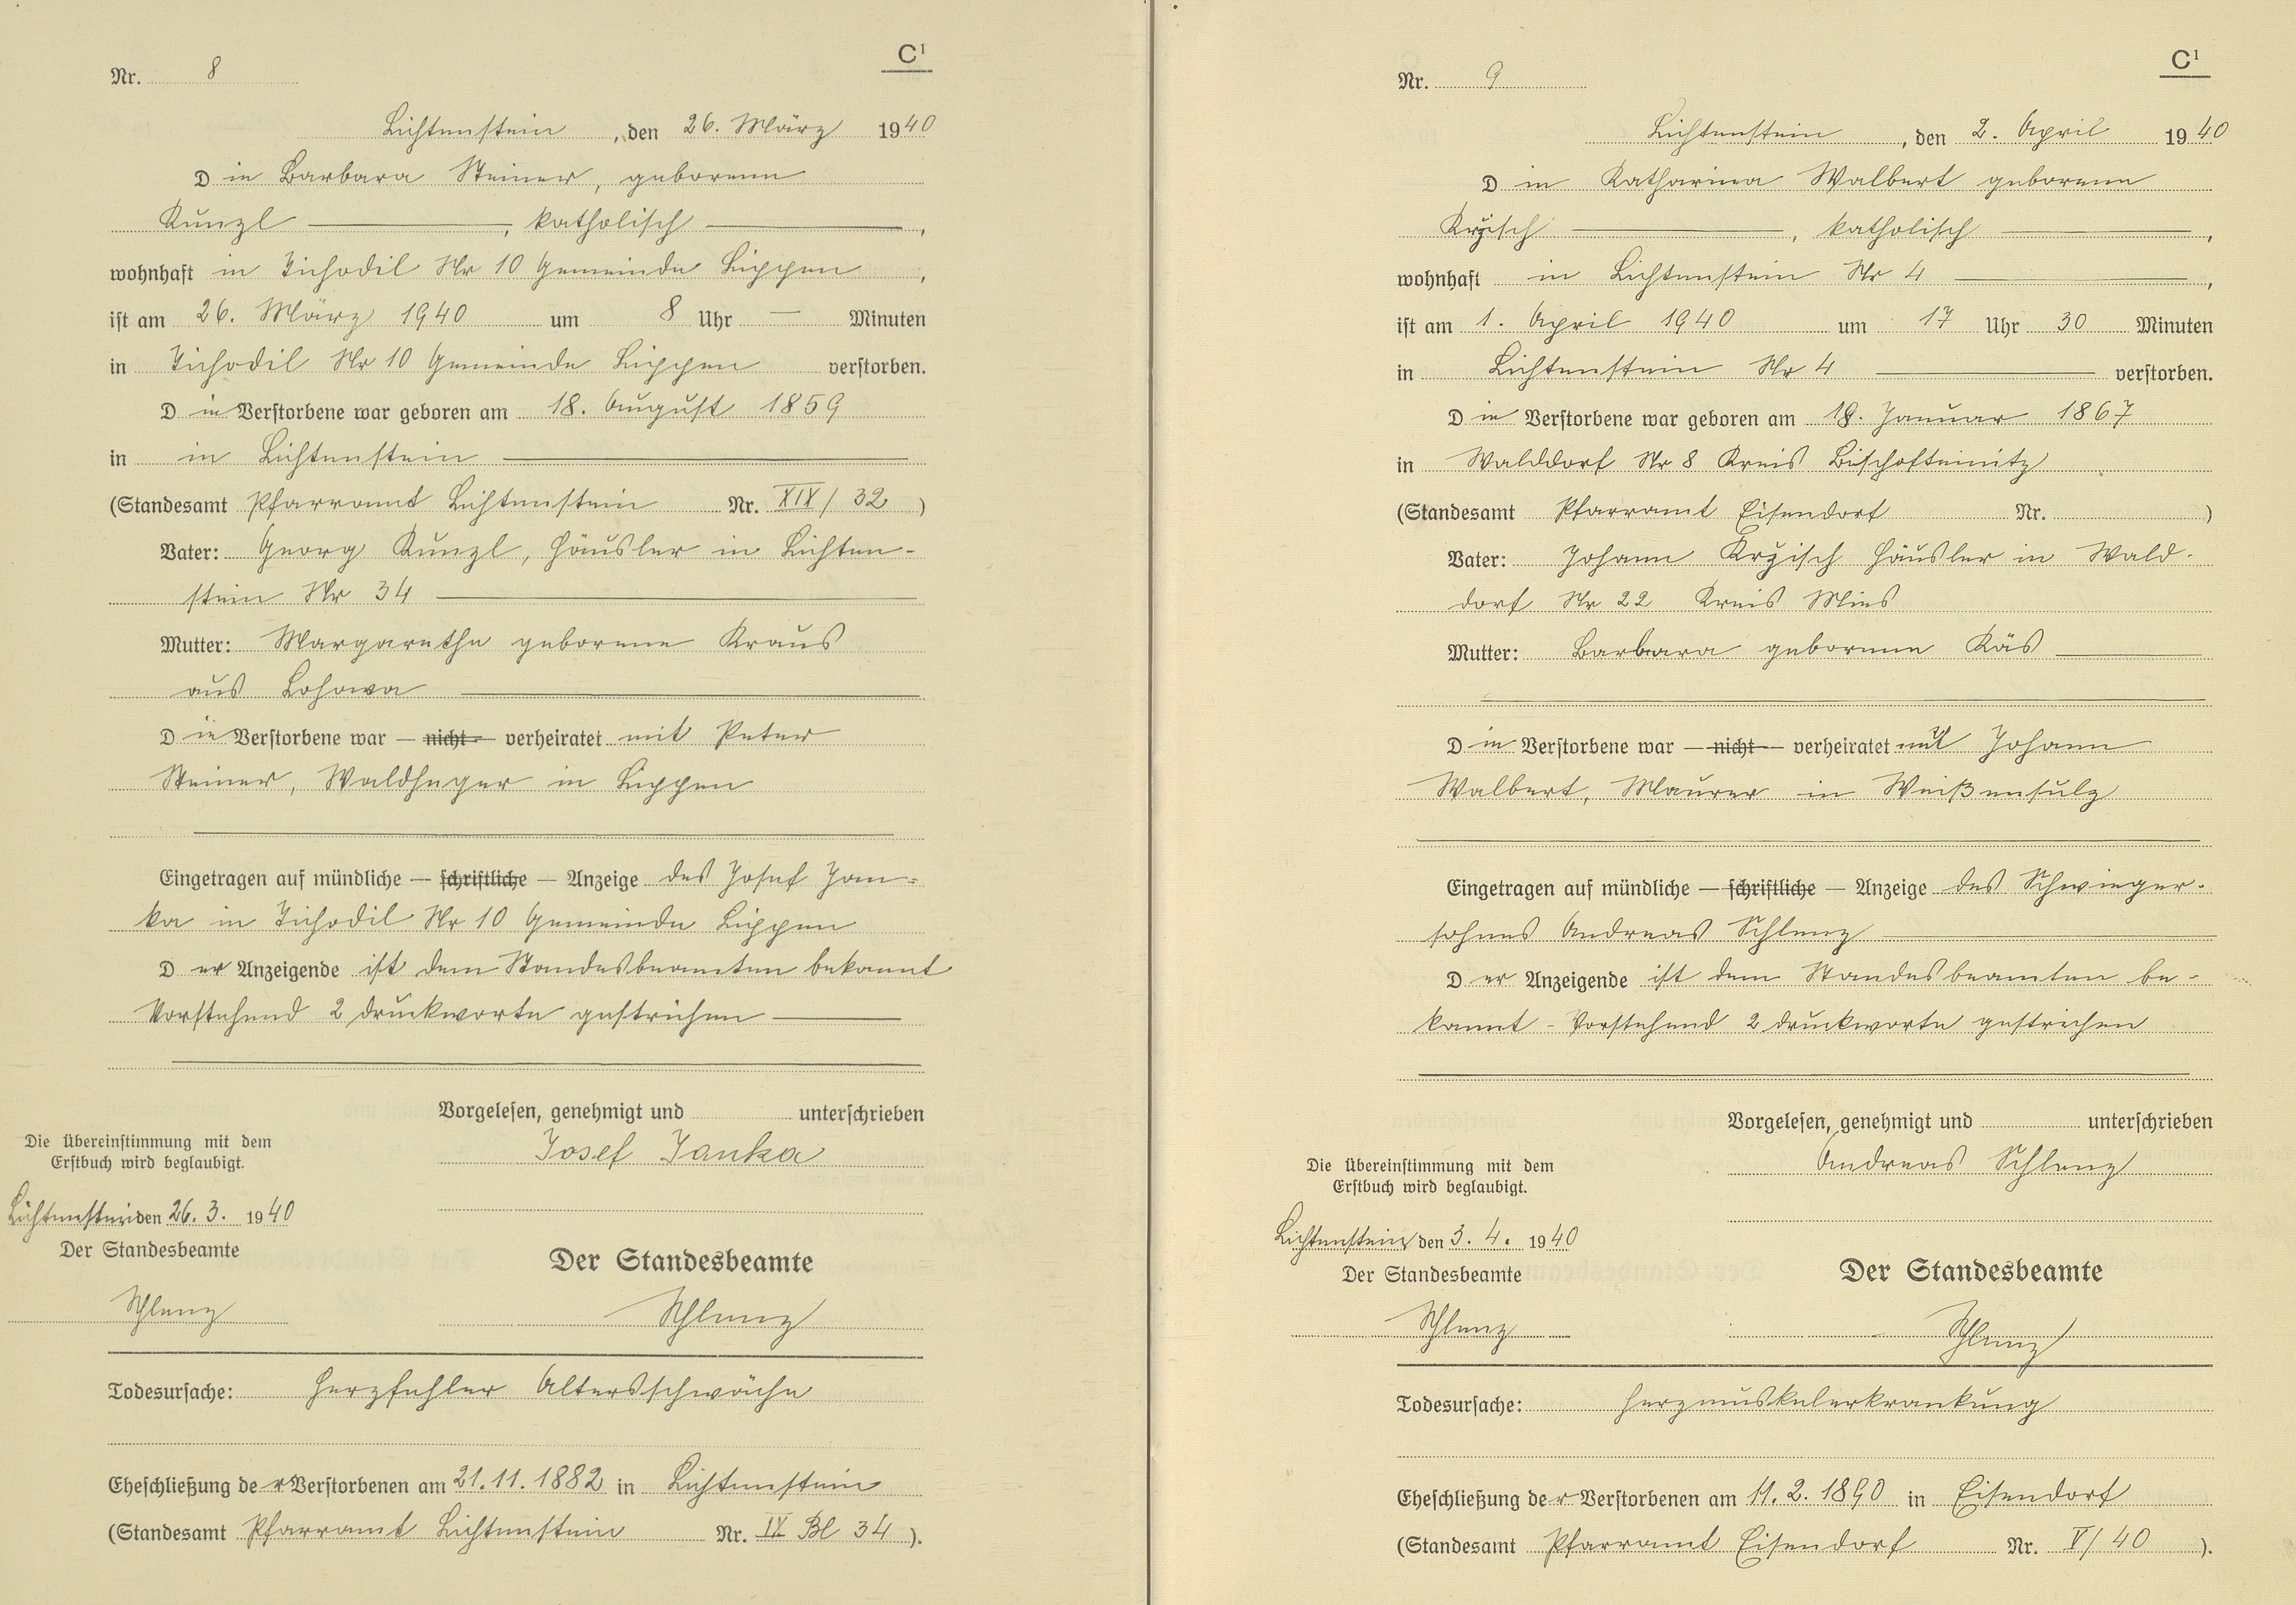 C¹
Nr. 8
Lichtenstein, den 26. März 1940
Die Barbara Steiner, geborene
Kunzl, katholisch,
wohnhaft in Tichodil Nr 10 Gemeinde Lippen,
ist am 26. März 1940 um 8 Uhr — Minuten
in Tichodil Nr 10 Gemeinde Lippen verstorben.
Die Verstorbene war geboren am 18. August 1859
in in Lichtenstein
(Standesamt Pfarramt Lichtenstein Nr. XIX/32)
Vater: Georg Kunzl, Häusler in Lichten-
stein Nr 34
Mutter: Margarethe geborene Kraus
aus Lohowa
Die Verstorbene war — nicht — verheiratet mit Peter
Steiner, Waldheger in Lippen
Eingetragen auf mündliche — schriftliche — Anzeige des Josef Jan-
ka in Tichodil Nr 10 Gemeinde Lippen
Der Anzeigende ist dem Standesbeamten bekannt
Vorstehend 2 Druckworte gestrichen
Vorgelesen, genehmigt und unterschrieben
Josef Janka
Die Übereinstimmung mit dem
Erstbuch wird beglaubigt.
Lichtenstein den 26. 3. 1940
Der Standesbeamte
Schlenz
Der Standesbeamte
Schlenz
Todesursache: Herzfehler Altersschwäche
Eheschließung der Verstorbenen am 21.11.1882 in Lichtenstein
(Standesamt Pfarramt Lichtenstein Nr. IX Bl 34).
C¹
Nr. 9
Lichtenstein, den 2. April 1940
Die Katharina Walbert geborene
Kržisch, katholisch,
wohnhaft in Lichtenstein Nr 4,
ist am 1. April 1940 um 17 Uhr 30 Minuten
in Lichtenstein Nr 4 verstorben.
Die Verstorbene war geboren am 18. Januar 1867
in Walddorf Nr 8 Kreis Bischofteinitz
(Standesamt Pfarramt Eisendorf Nr. )
Vater: Johann Kržisch Häusler in Wald-
dorf Nr 22 Kreis Mies
Mutter: Barbara geborene Käs
Die Verstorbene war — nicht — verheiratet mit Johann
Walbert, Maurer in Weißensulz
Eingetragen auf mündliche — schriftliche — Anzeige des Schwieger-
sohnes Andreas Schlenz
Der Anzeigende ist dem Standesbeamten be-
kannt - Vorstehend 2 Druckworte gestrichen
Vorgelesen, genehmigt und unterschrieben
Andreas Schlenz
Die Übereinstimmung mit dem
Erstbuch wird beglaubigt.
Lichtenstein den 3. 4. 1940
Der Standesbeamte
Schlenz
Der Standesbeamte
Schlenz
Todesursache: Herzmuskelerkrankung
Eheschließung der Verstorbenen am 11. 2. 1890 in Eisendorf
(Standesamt Pfarramt Eisendorf Nr. V/40).